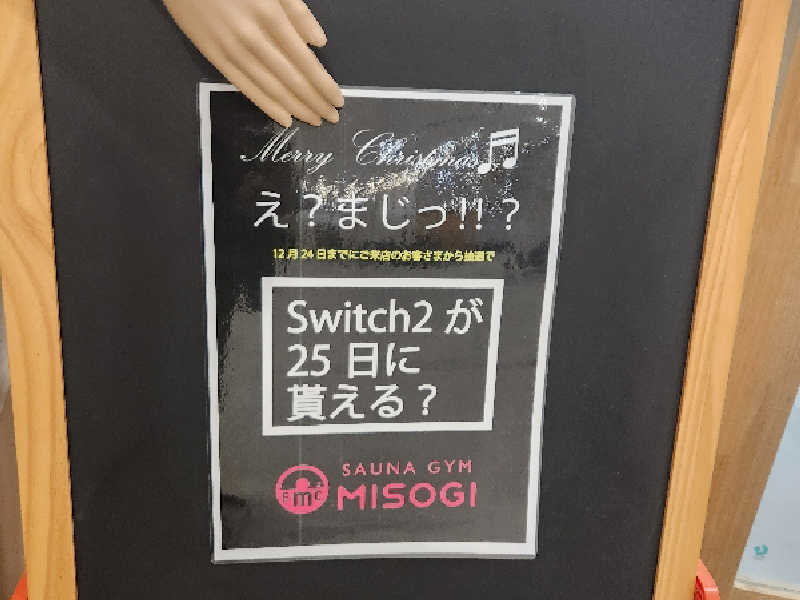 Merry Christmas
え？まじっ!!？
12月24日までにご来店のお客さまから抽選で
Switch2が
25日に
貰える？
SAUNA GYM
MISOGI